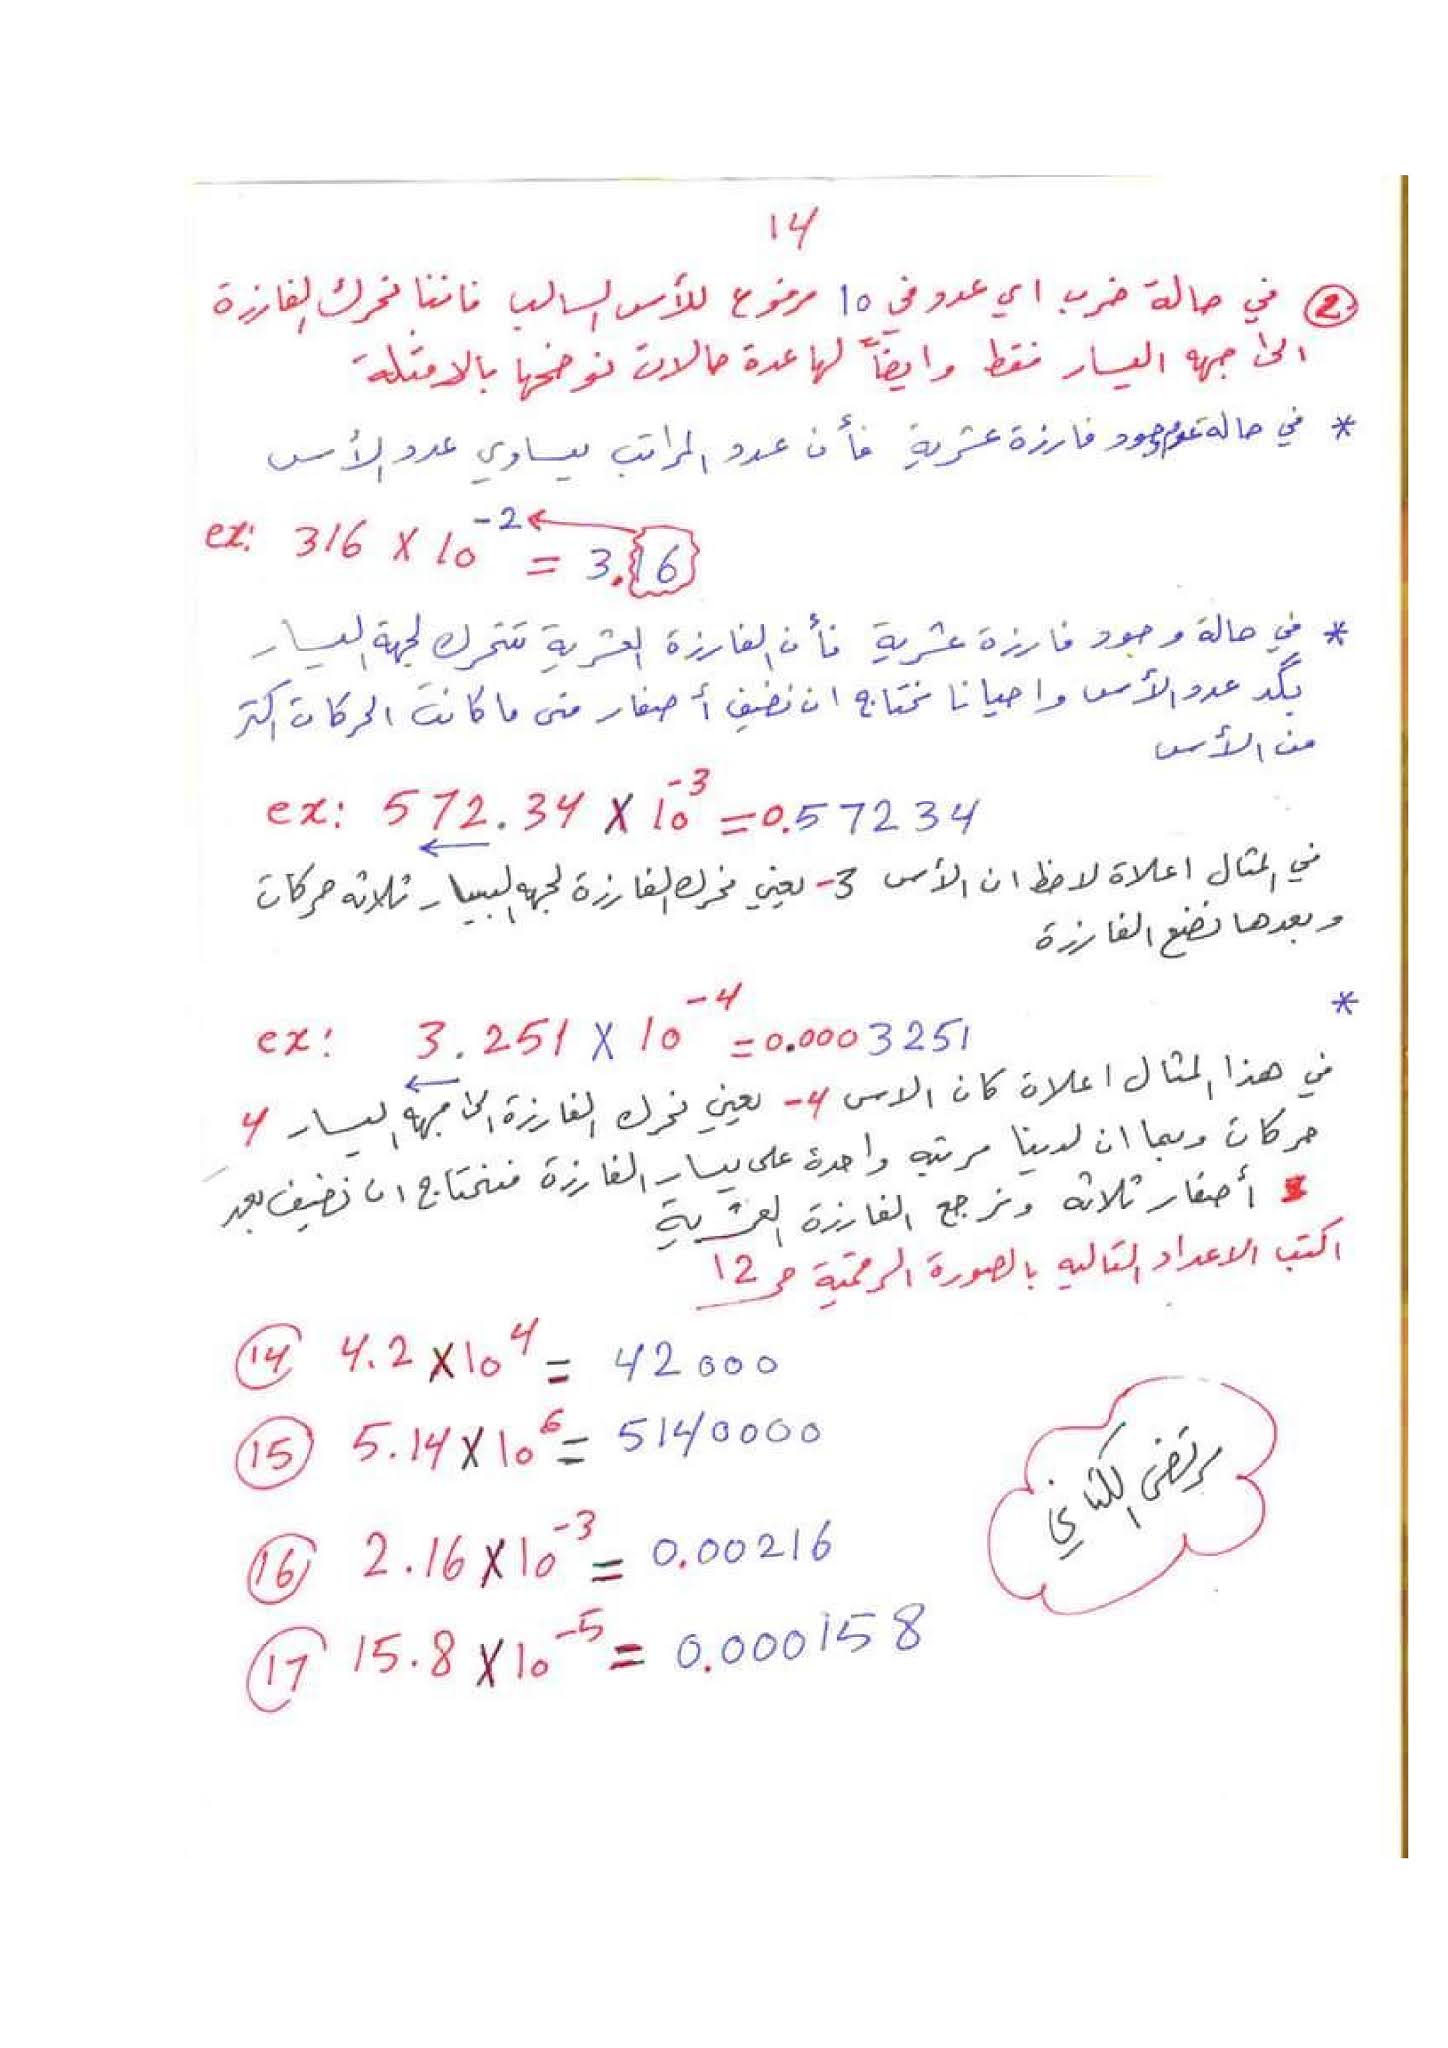 14
② في حالة ضرب اي عدد في 10 مرفوع للأس السالب فاننا نحرك الفارزة
الى جهه اليسار فقط وايضاً لها عدة حالات نوضحها بالامثلة
* في حالة عدم وجود فارزة عشرية فأن عدد المراتب يساوي عدد الأس
ex: 316 × 10⁻² = 3.16
* في حالة وجود فارزة عشرية فأن الفارزة العشرية تتحرك لجهة اليسار
بگد عدد الأس واحيانا نحتاج ان نضيف أصفار متى ما كانت الحركات اكثر
من الأس
ex: 572.34 × 10⁻³ = 0.57234
في المثال اعلاة لاحظ ان الأس 3- يعني نحرك الفارزة لجهه اليسار ثلاثه حركات
وبعدها نضع الفارزة
*
ex: 3.251 × 10⁻⁴ = 0.0003251
في هذا المثال اعلاة كان الاس 4- يعني نحرك الفارزة الى جهه اليسار 4
حركات وبما ان لدينا مرتبه واحدة على يسار الفارزة فنحتاج ان نضيف بعد
أصفار ثلاثه ونرجع الفارزة العشرية
اكتب الاعداد التاليه بالصورة الرقمية ص12
⑭ 4.2 × 10⁴ = 42000
⑮ 5.14 × 10⁶ = 5140000
مرتضى الكناني
⑯ 2.16 × 10⁻³ = 0.00216
⑰ 15.8 × 10⁻⁵ = 0.000158